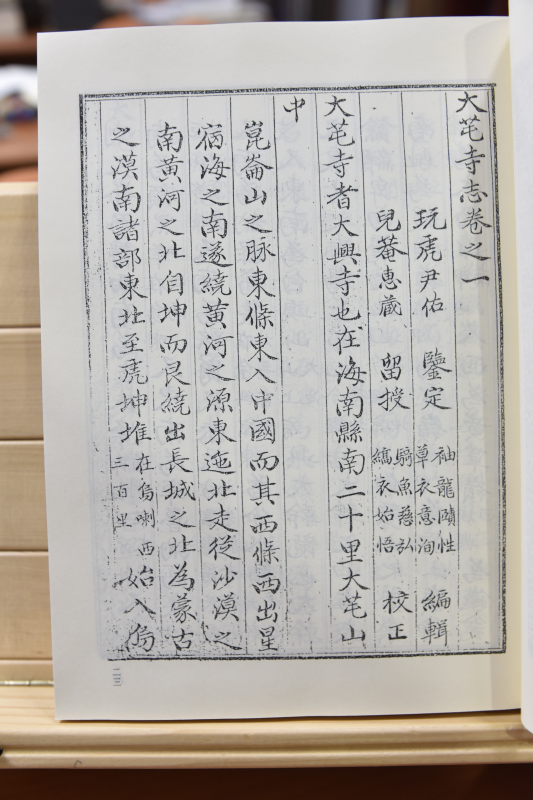 大芚寺志卷之一
玩虎尹佑 鑒定 袖龍賾性 草衣意洵 編輯
兒菴惠藏 留授 騎魚慈弘 縞衣始悟 校正
大芚寺者大興寺也在海南縣南二十里大芚山
中
崑崙山之脉東條東入中國而其西條西出星
宿海之南遂繞黃河之源東迤北走從沙漠之
南黃河之北自坤而艮繞出長城之北為蒙古
之漠南諸部東北至虎坤堆在烏喇西三百里始入烏
二三